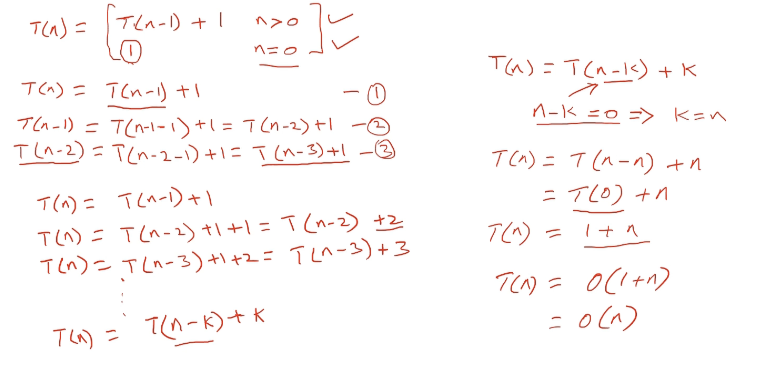 T(n) = [ T(n-1) + 1    n>0 ] ✓
[ ①    n=0 ] ✓
T(n) = T(n-1) +1    - ①
T(n-1) = T(n-1-1) +1 = T(n-2) +1 - ②
T(n-2) = T(n-2-1) +1 = T(n-3) +1 - ③
T(n) = T(n-1) +1
T(n) = T(n-2) +1 +1 = T(n-2) +2
T(n) = T(n-3) +1 +2 = T(n-3) + 3
⋮
T(n) = T(n-k) + k
T(n) = T(n-k) + k
n-k = 0 => k = n
T(n) = T(n-n) + n
= T(0) + n
T(n) = 1 + n
T(n) = O(1+n)
= O(n)